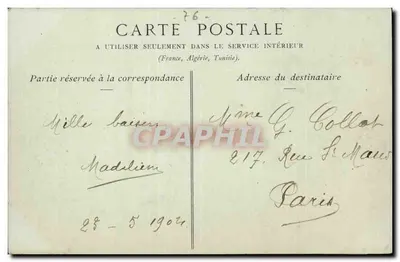 76-
CARTE POSTALE
A UTILISER SEULEMENT DANS LE SERVICE INTÉRIEUR
(France, Algérie, Tunisie).
Partie réservée à la correspondance
Adresse du destinataire
Mille baisers
Madeleine
23 - 5 1904
Mme G. Collot
217. Rue St Maur
Paris
CPAPHIL